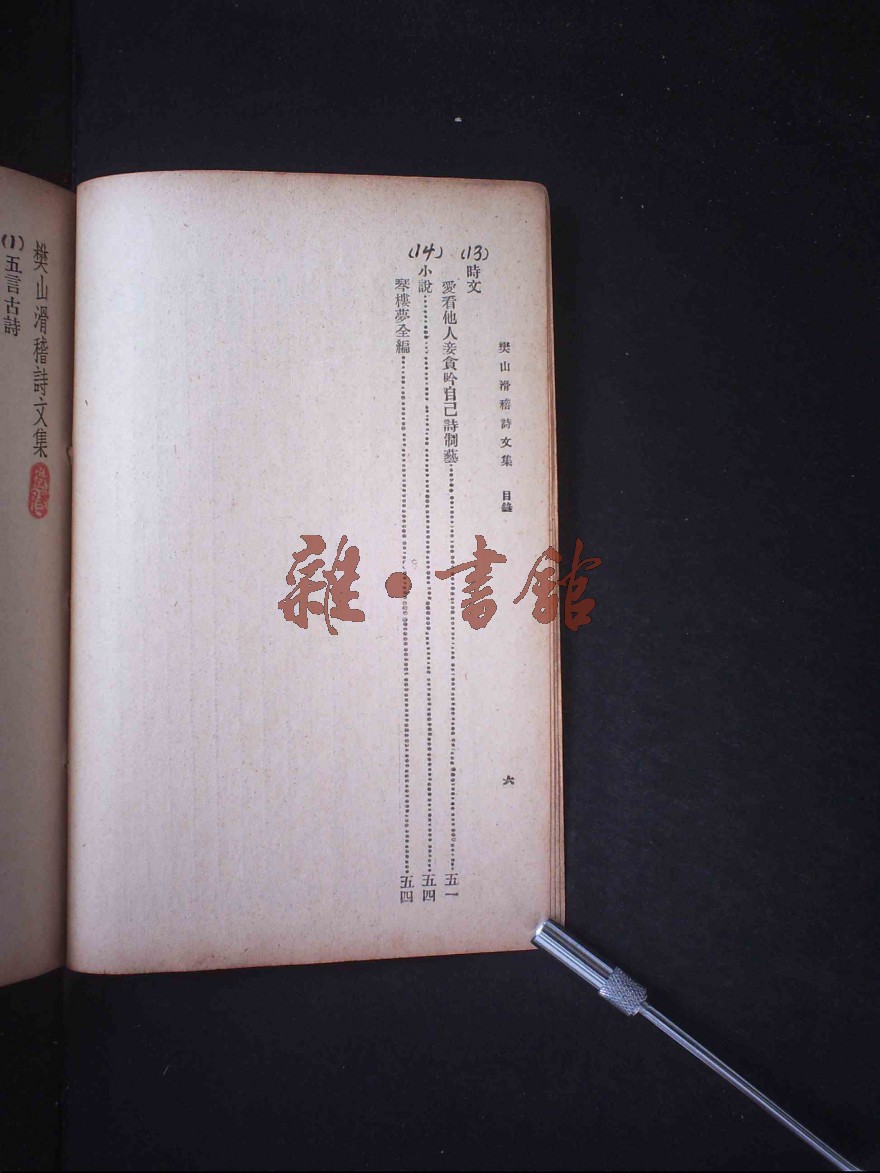 樊山滑稽詩文集 目錄
六
(13) 時文
愛看他人妾貪吟自己詩制藝 五一
(14) 小說 五四
琴樓夢全編 五四
樊山滑稽詩文集
(1) 五言古詩
雜·書館